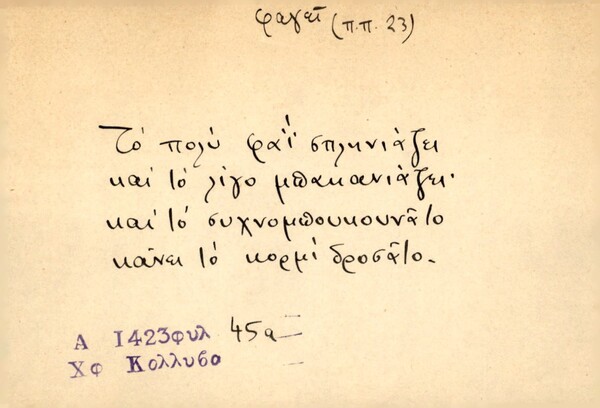 φαγεῖ (π.π. 23)
Τό πολύ φαΐ σπληνιάζει
καί τό λίγο μπακανιάζει·
καί τό συχνομπουκουνᾶτο
κάνει τό κορμί δροσᾶτο.
Α 1423φυλ 45α
Χφ Κολλυβα